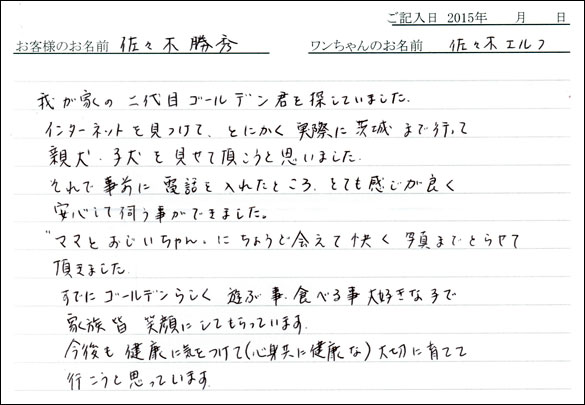 ご記入日 2015年 月 日
お客様のお名前 佐々木 勝秀 ワンちゃんのお名前 佐々木 エルフ
我が家の二代目ゴールデン君を探していました.
インターネットを見つけて、とにかく実際に茨城まで行って
親犬・子犬を見せて頂こうと思いました.
それで事前に電話を入れたところ、とても感じが良く
安心して伺う事ができました。
"ママとおじいちゃん〟にちょうど会えて快く写真までとらせて
頂きました.
すでにゴールデンらしく遊ぶ事、食べる事大好きな子で
家族皆笑顔にしてもらっています.
今後も健康に気をつけて(心身共に健康な)大切に育てて
行こうと思っています.